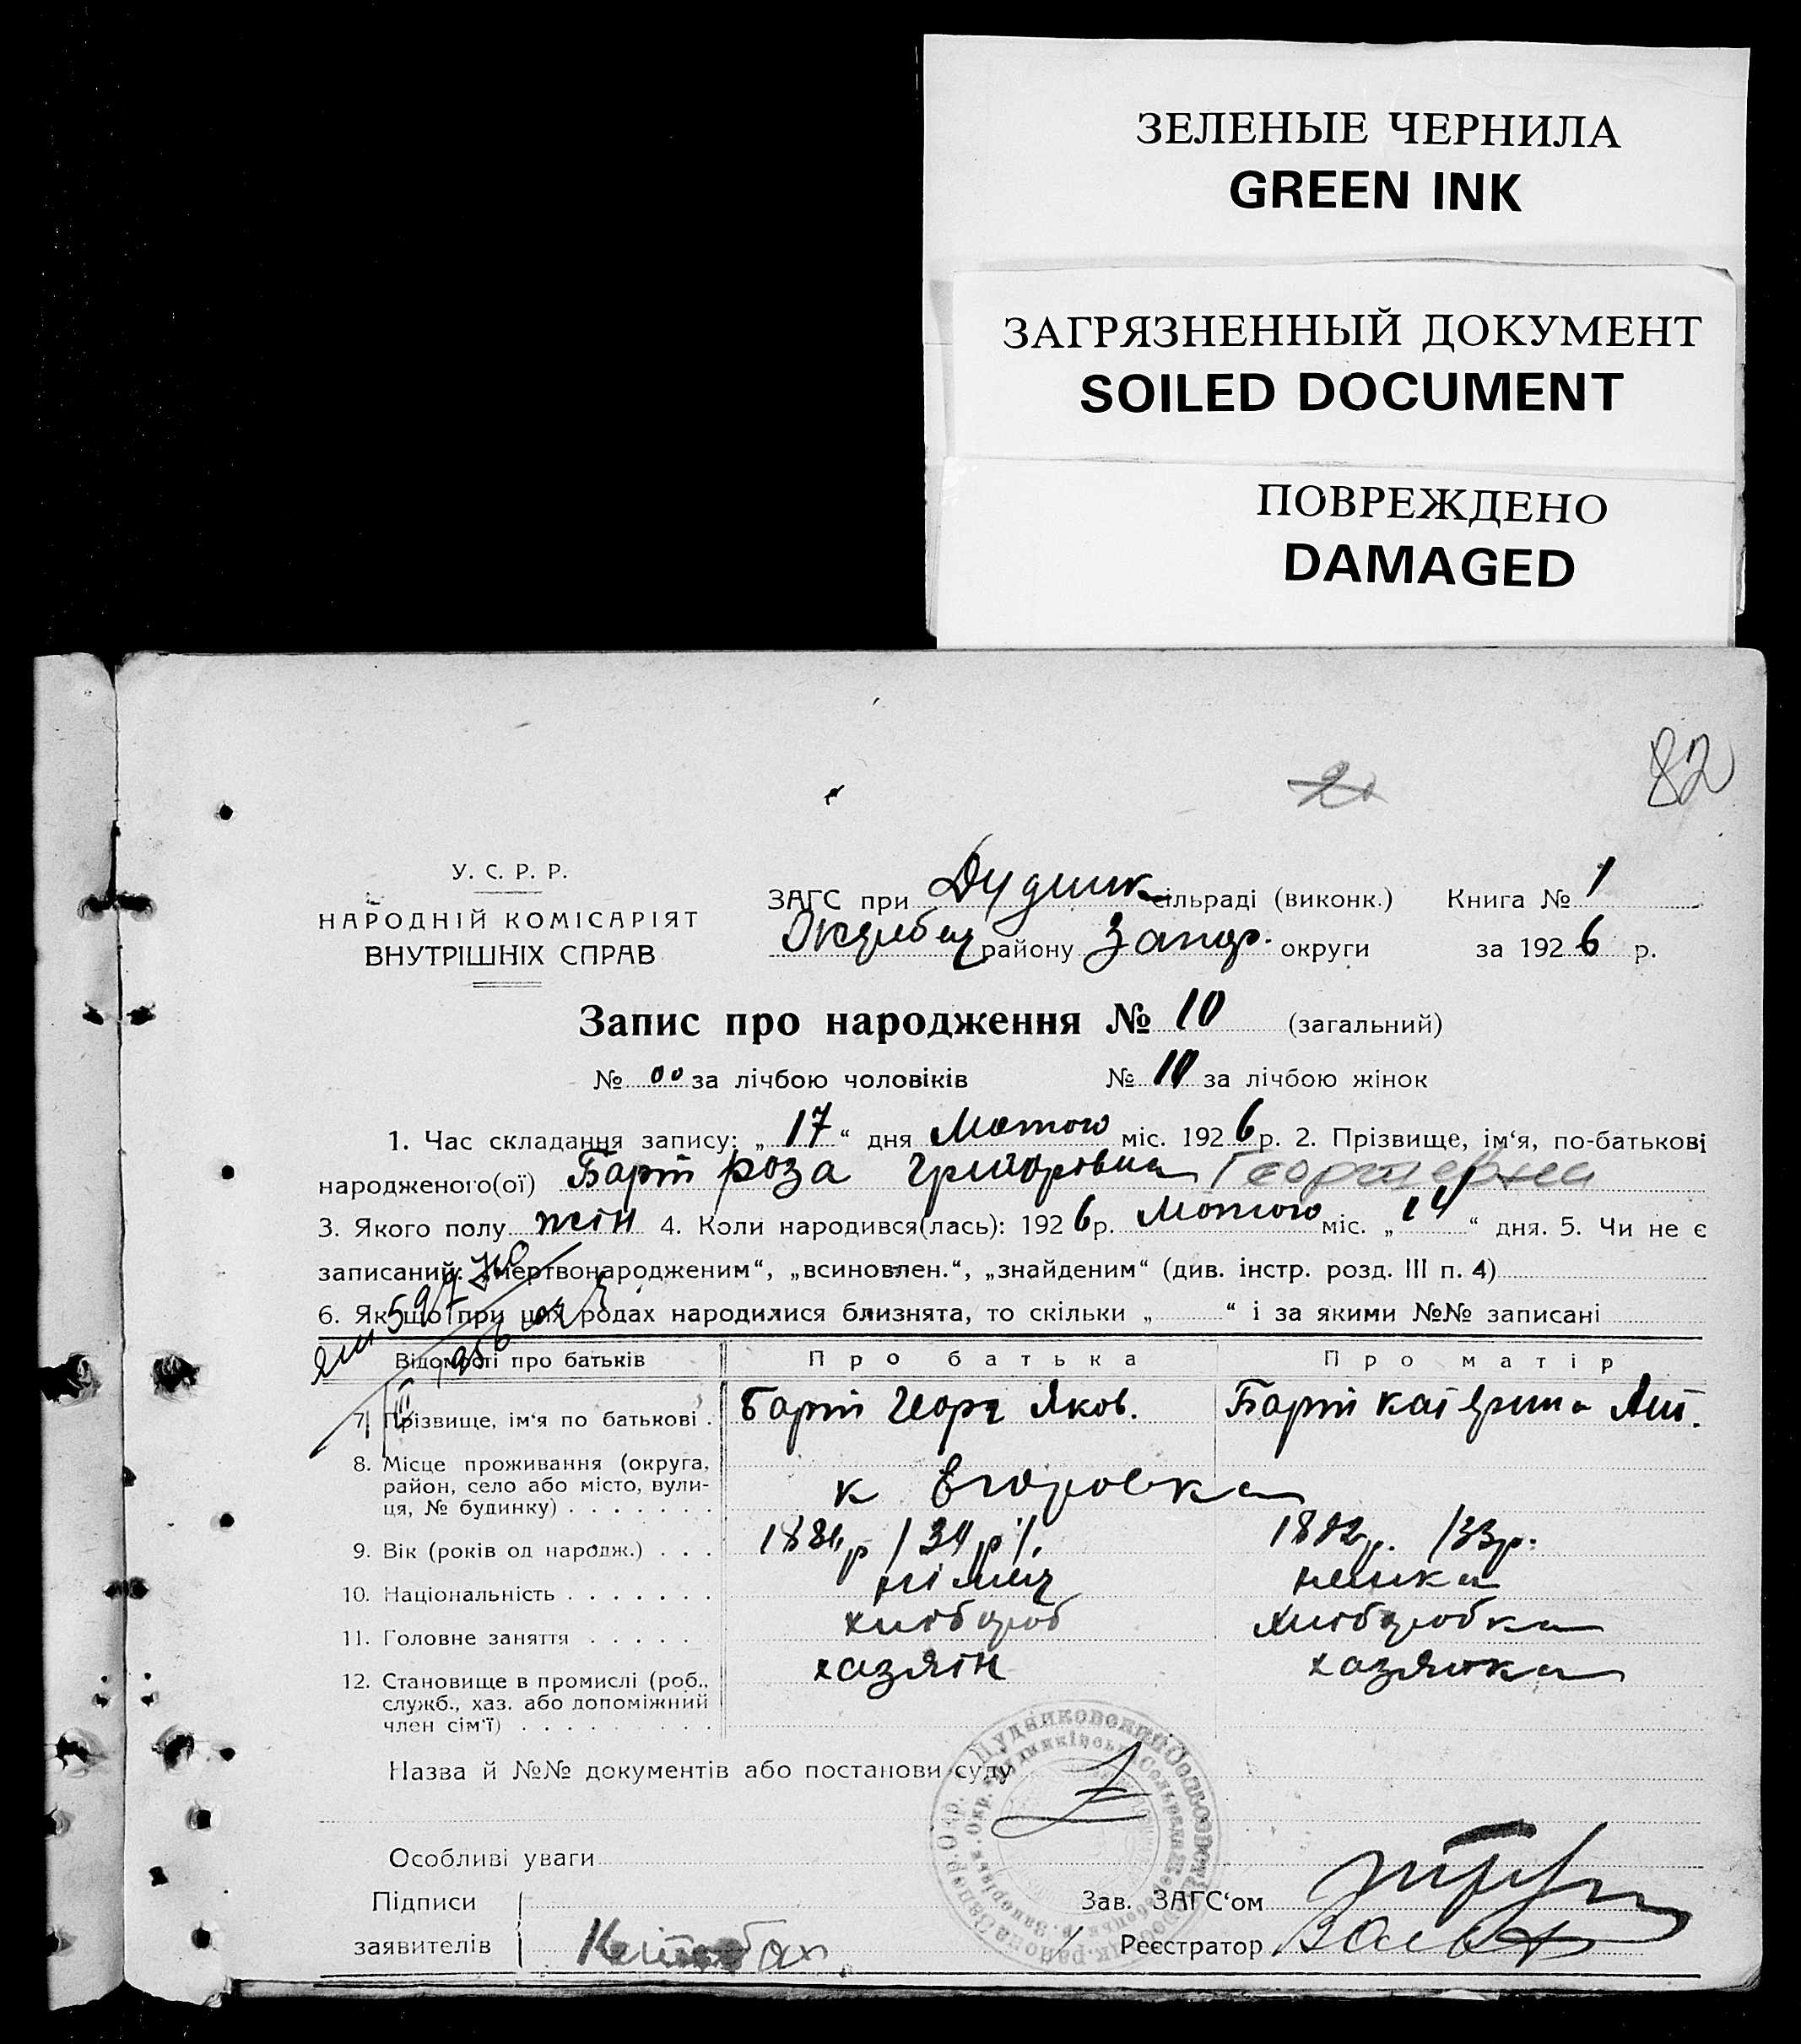 ЗЕЛЕНЫЕ ЧЕРНИЛА
GREEN INK
ЗАГРЯЗНЕННЫЙ ДОКУМЕНТ
SOILED DOCUMENT
ПОВРЕЖДЕНО
DAMAGED
82
У. С. Р. Р.
НАРОДНІЙ КОМІСАРІЯТ
ВНУТРІШНІХ СПРАВ
ЗАГС при Дудник сільраді (виконк.) Книга № 1
району Запор. округи за 1926 р.
Запис про народження № 10 (загальний)
№ 00 за лічбою чоловіків № 10 за лічбою жінок
1. Час складання запису: „ 17 “ дня Лютого міс. 1926 р. 2. Прізвище, ім‘я, по-батькові
народженого(ої) Барт роза Григорівна Георгіевна
3. Якого полу жін 4. Коли народився(лась): 1926 р. Лютого міс. „ 14 “ дня. 5. Чи не є
записаний: „мертвонародженим“, „всиновлен.“, „знайденим“ (див. інстр. розд. III п. 4)
6. Якщо при цих родах народилися близнята, то скільки „ “ і за якими №№ записані
Відомості про батьків Про батька Про матір
7. Прізвище, ім‘я по батькові . Барт Георг Яков. Барт Катерина Ант.
8. Місце проживання (округа,
район, село або місто, вули-
ця, № будинку) . . . . . . . к Егоровка
9. Вік (років од народж.) . . . /34 р/. /33р.
10. Національність . . . . . . . німець немка
11. Головне заняття . . . . . хлібороб хліборобка
12. Становище в промислі (роб.,
служб., хаз. або допоміжний
член сім‘ї) . . . . . . . . . хазяїн хазяйка
Назва й №№ документів або постанови суду
Особливі уваги
Підписи
заявителів
Зав. ЗАГС‘ом
Реєстратор